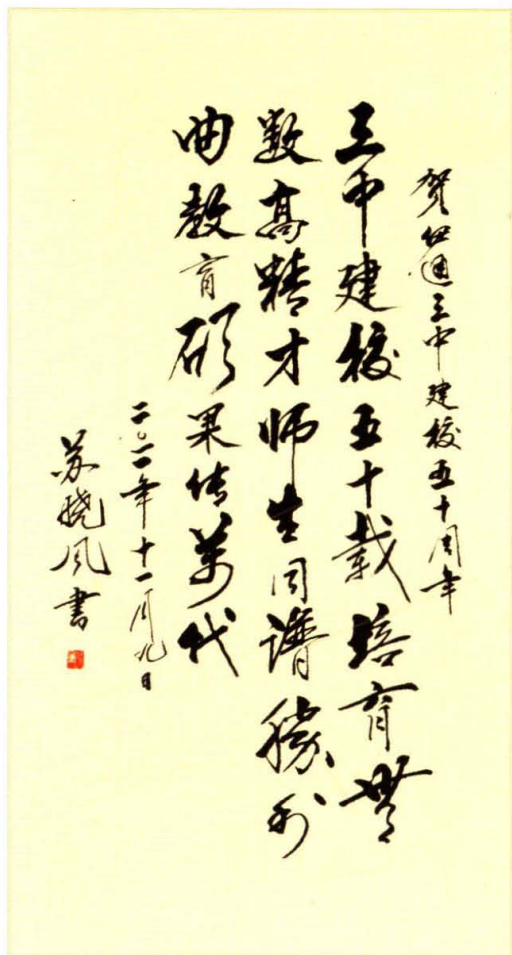 贺伊通三中建校五十周年
三中建校五十载培育无
数高精才师生同谱胜利
曲教育硕果传万代
二〇一一年十一月九日
苏晓风书